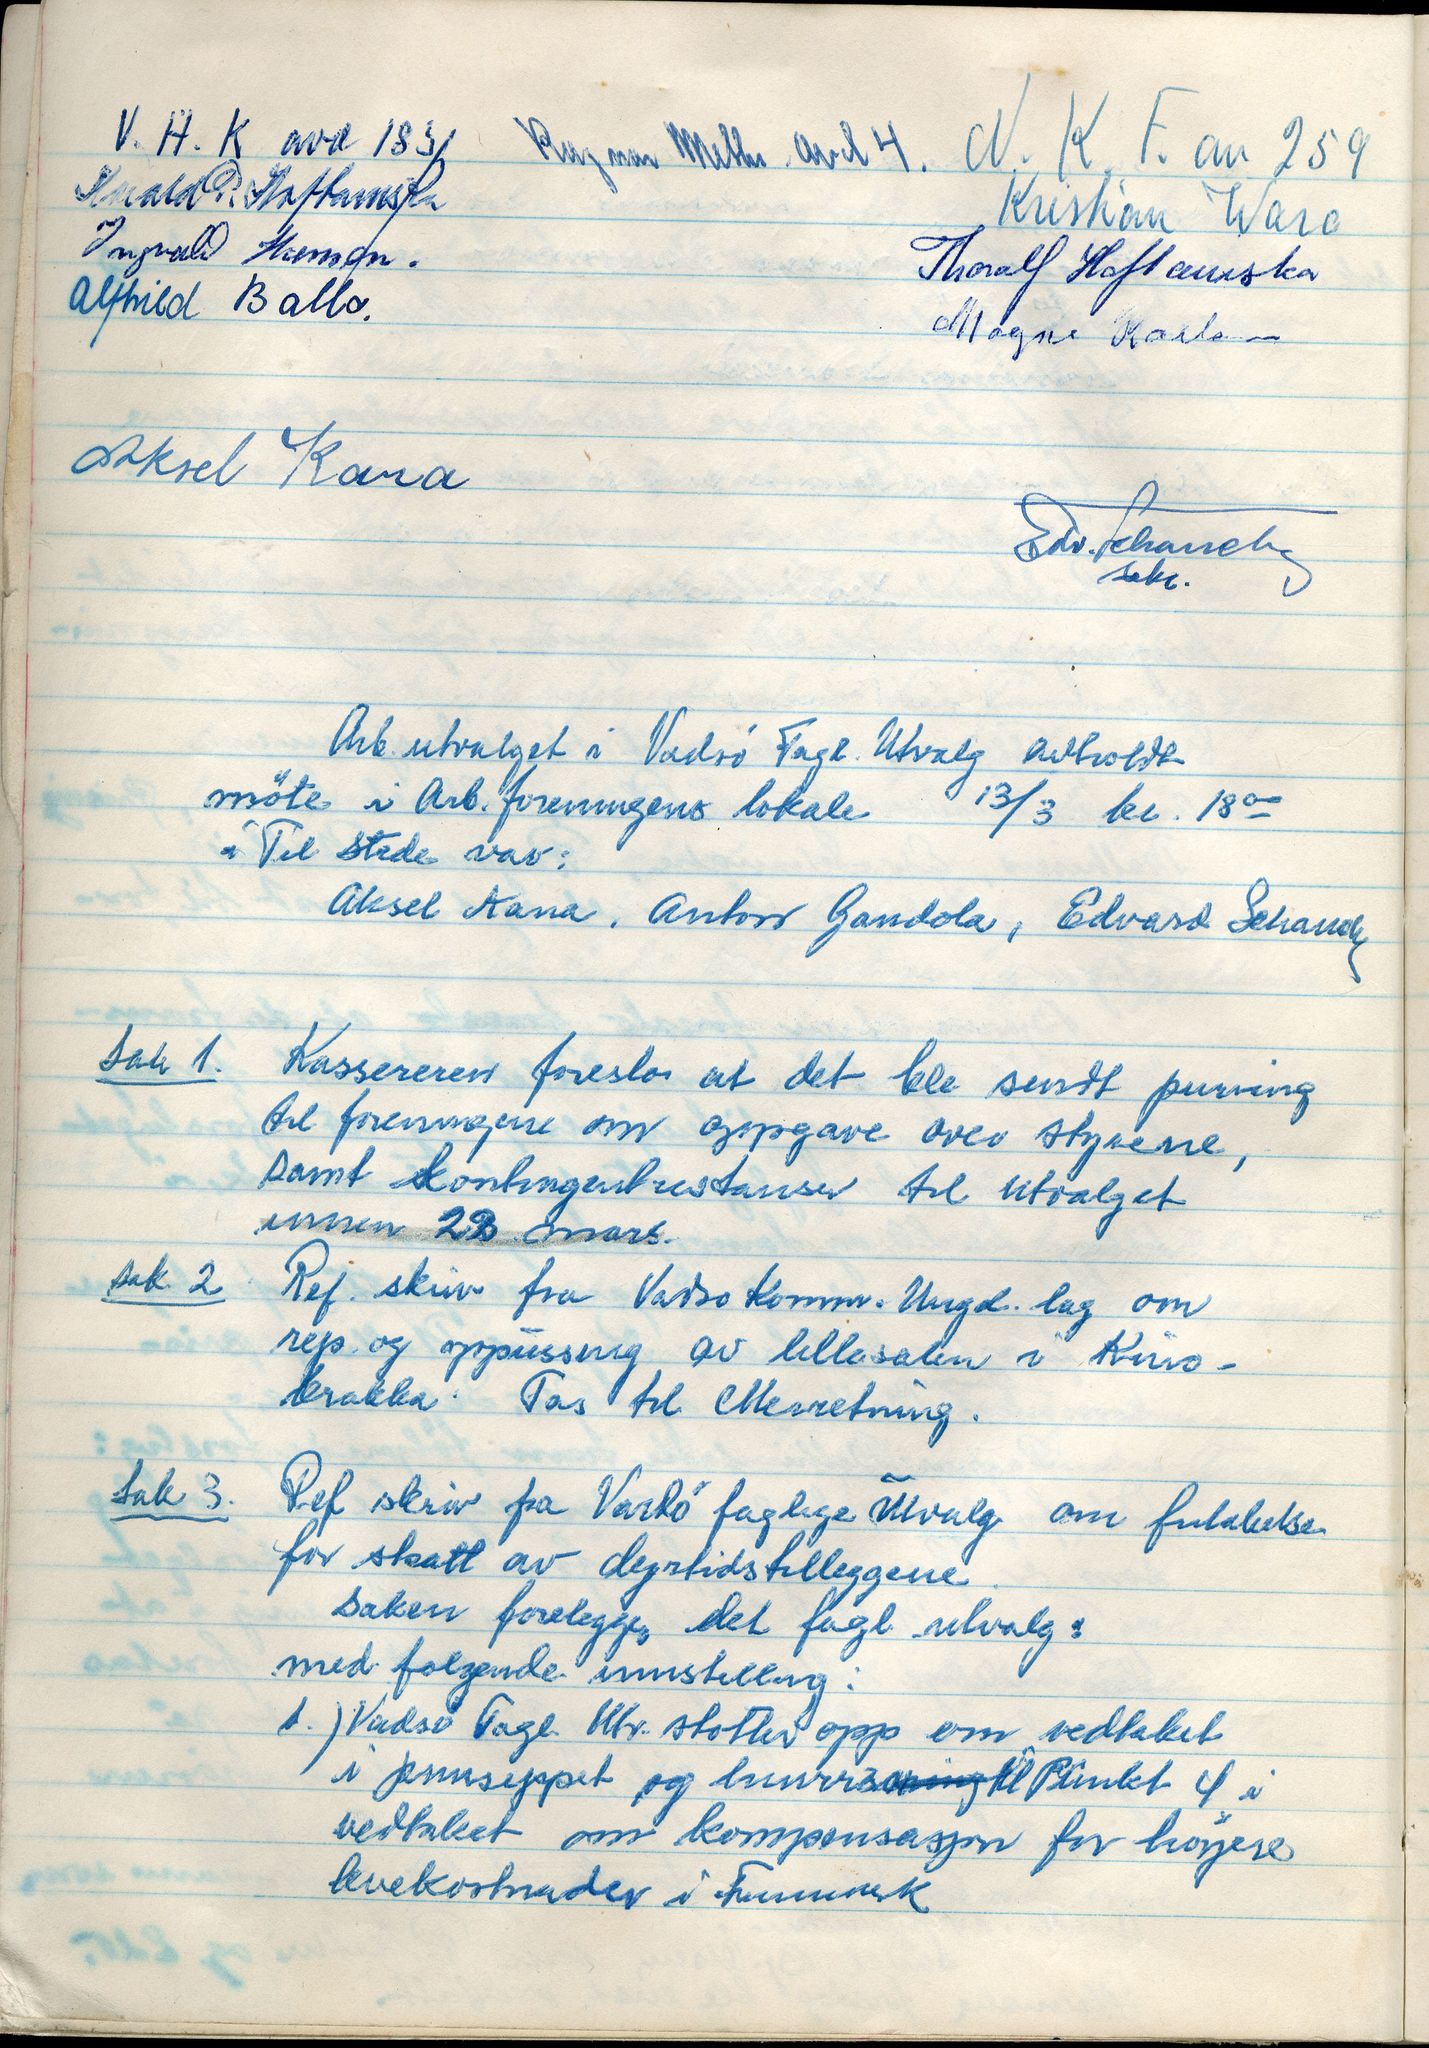 V. H. K avd 183
Ragnar avd 4.
N. K. F. av 259
Harald
Kristian Wara
Ingvald
Thoralf Haftamska
Alfhild Ballo.
Magne
Aksel Kana
Edv. Schancke
sekr.
Arb. utvalget i Vadsö Fagl. Utvalg avholdt
möte i Arb. foreningens lokale 13/3 kl. 18 00
i Til stede var:
Aksel Kana, Anton Gandola, Edvard Schancke
Sak 1. Kassereren foreslo at det ble sendt purring
til foreningene om oppgave over styrene,
samt Kontingentrestanser til utvalget
innen mars.
sak 2 Ref. skriv fra Vadsö Komm. Ungd. lag om
rep. og oppussing av lillesalen i Kino-
brakka. Tas til etterretning.
Sak 3. Ref skriv fra Vardö faglige Utvalg om fritakelse
for skatt av dyrtidstilleggene.
Saken forelegges det fagl. utvalg:
med følgende innstilling:
1.) Vadsö Fagl. Utv. støtter opp om vedtaket
i prinsippet og til Punkt 4 i
vedtaket om kompensasjon for höyere
levekostnader i Finnmark